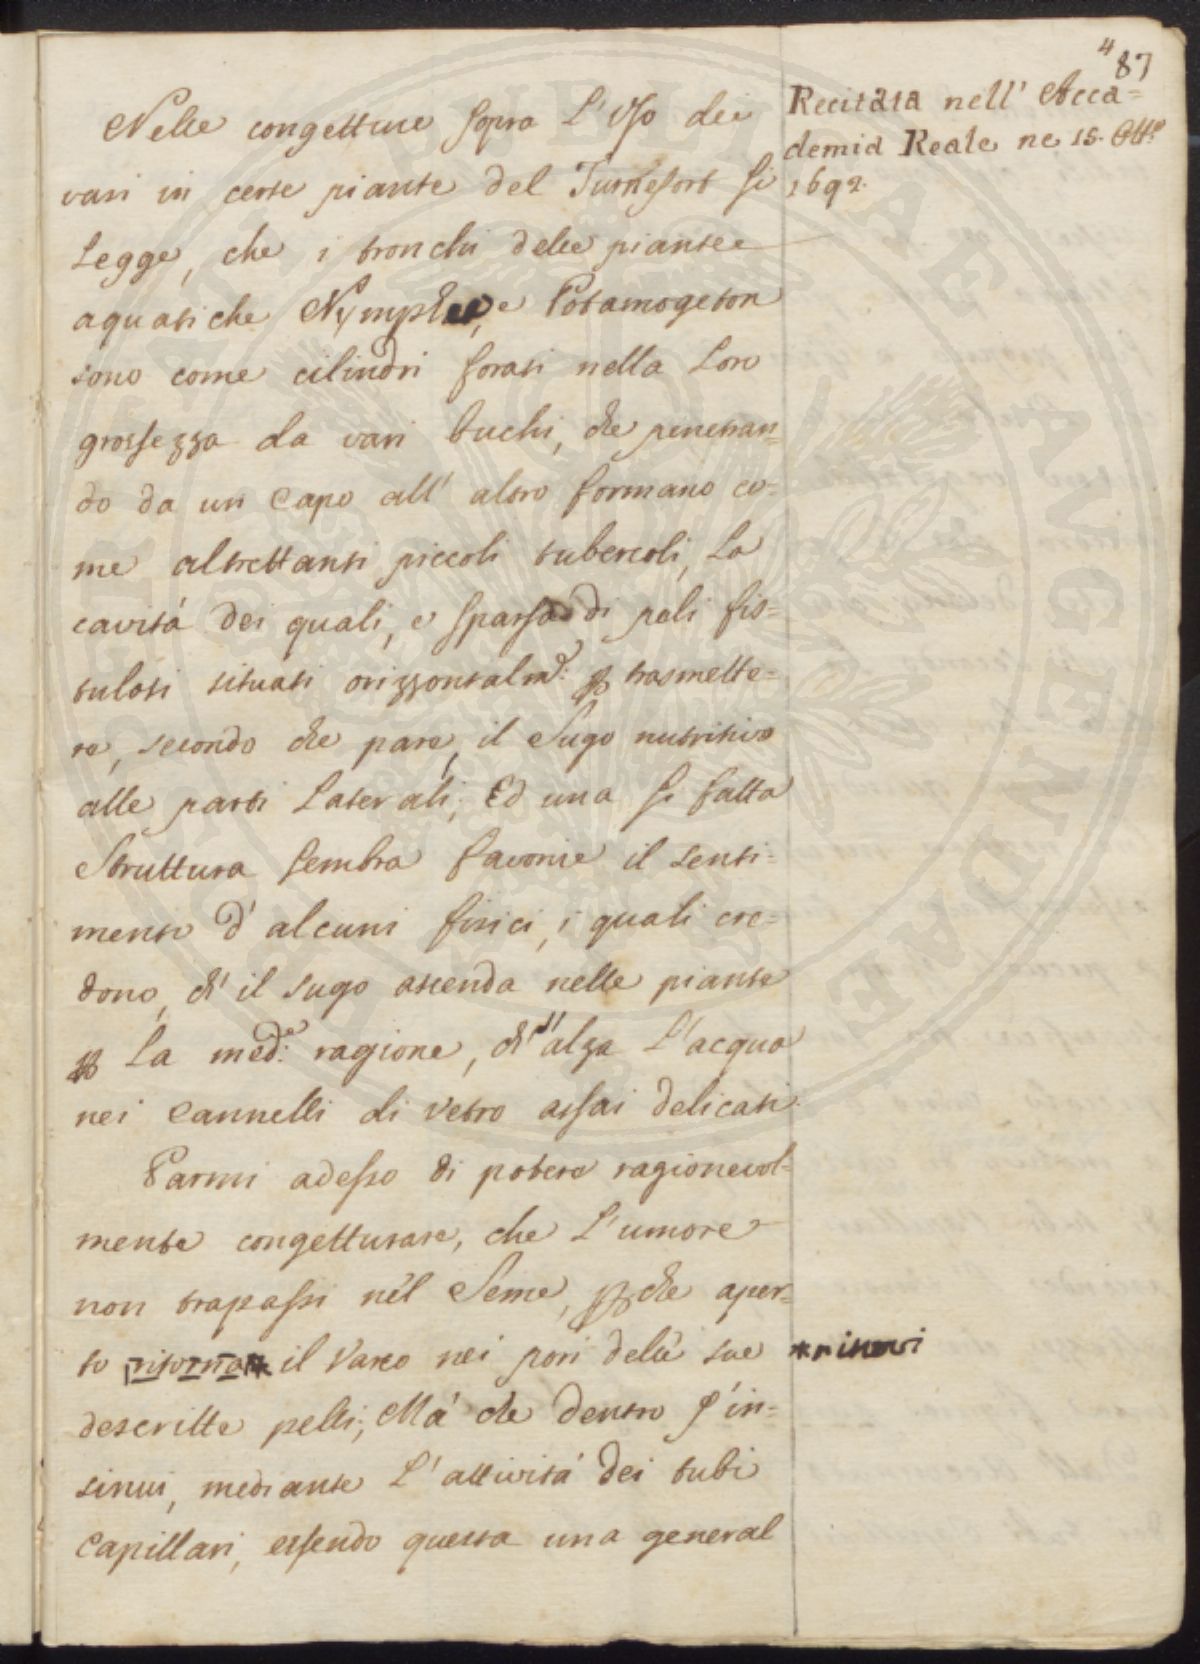 4
87
Recitata nell' Acca=
demia Reale ne 15. Ott.e
1692.
Nelle congetture sopra L'Uso dei
vasi in certe piante del Turnefort si
Legge, che i tronchi delle piante
aquatiche Nymphee, e Potamogeton
sono come cilindri forati nella Loro
grossezza da vari buchi, che penetran=
do da un Capo all' altro formano co=
me altrettanti piccoli tubercoli, La
cavitá dei quali, e sparsa di peli fis=
tulosi situati orizzontalm.e ꝑ trasmette=
re, secondo che pare, il Sugo nutritivo
alle parti Laterali; Ed una si fatta
Struttura sembra favorire il senti=
mento d' alcuni fisici, i quali cre=
dono, ch' il sugo ascenda nelle piante
ꝑ La med.e ragione, ch' s'alza L'acqua
nei Cannelli di vetro assai delicati.
Parmi adesso di potere ragionevol=
mente congetturare, che L'umore
non trapassi nel Seme, ꝑche aper=
to ritorna* il varco nei pori delle sue
*ritrovi
descritte pelli; Má che dentro s'in=
sinui, mediante L' attivitá dei tubi
Capillari, essendo questa una general